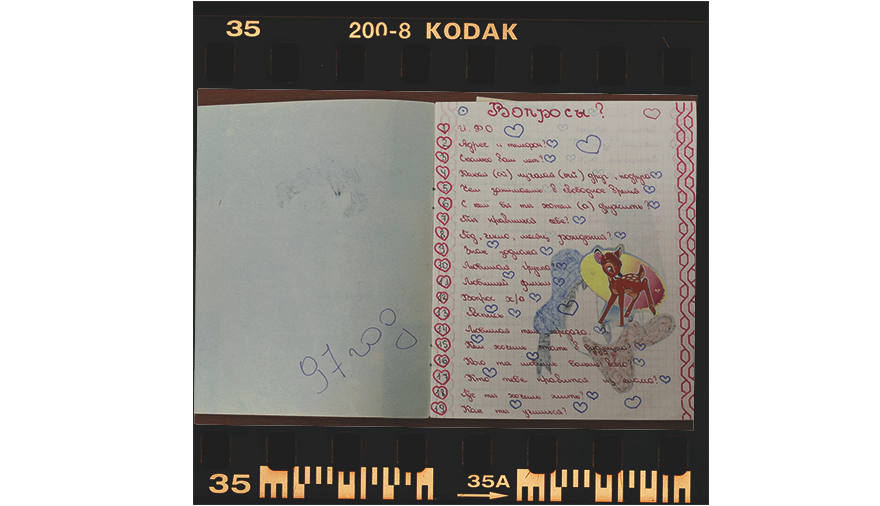 35 200-8 KODAK
97 год
Вопросы?
1 И.ФО
2 Адрес и телефон?
3 Сколько вам лет?
4 Какой (ая) лучшая (ий) друг, подруга
5 Чем занимаешься в свободное время
6 С кем бы ты хотел (а) дружить?
7 нравишься себе?
8 Год, число, месяц рождения?
9 Знак зодиака
10 Любимая группа
11 Любимый фильм
12 Вопрос х/а
13 Роспись
14 Любимая теле передача
15 Кем хочешь стать в будущем?
16 Кого ты любишь больше всего?
17 Кто тебе нравится из класса?
18 Где ты хочешь жить?
19 Как ты учишься?
35 35A